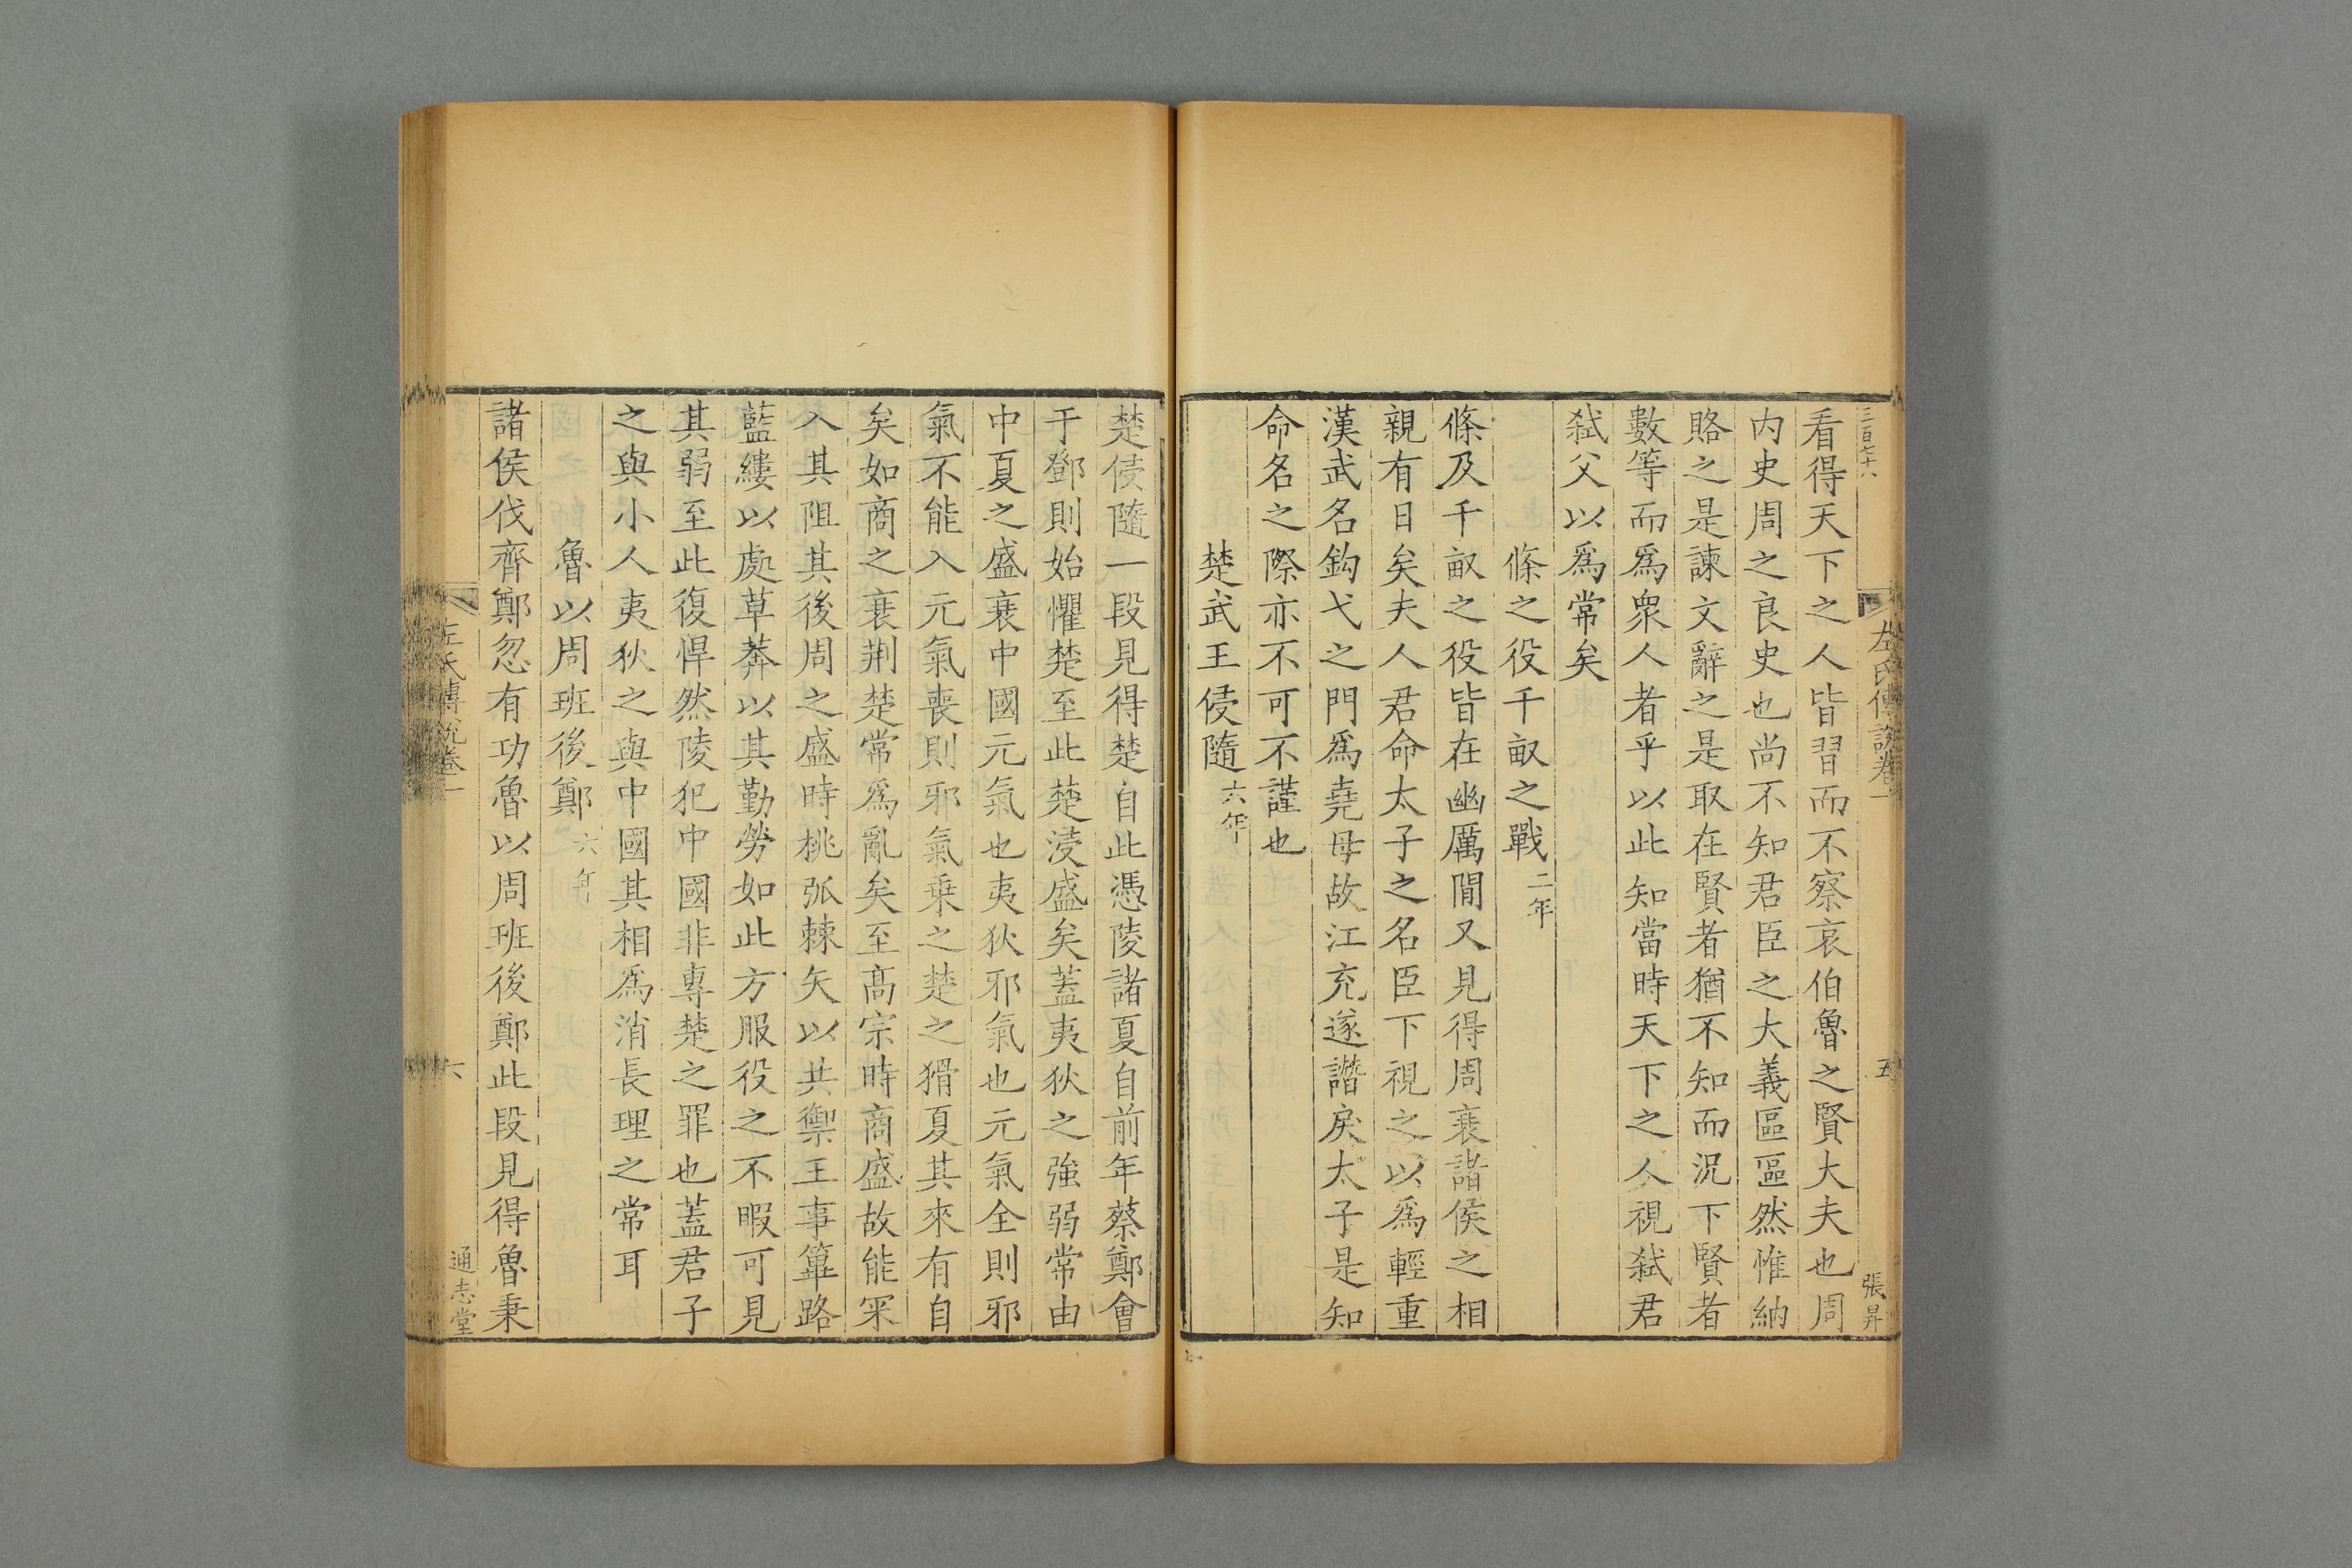 三百七十八
左氏傳說卷一
五
張昇
看得天下之人皆習而不察哀伯魯之賢大夫也周
内史周之良史也尚不知君臣之大義區區然惟納
賂之是諫文辭之是取在賢者猶不知而況下賢者
數等而爲衆人者乎以此知當時天下之人視弑君
弑父以爲常矣
條之役千畝之戰二年
條及千畝之役皆在幽厲閒又見得周衰諸侯之相
親有日矣夫人君命太子之名臣下視之以爲輕重
漢武名鈎弋之門爲堯母故江充遂譖戾太子是知
命名之際亦不可不謹也
楚武王侵隨六年
楚侵隨一段見得楚自此憑陵諸夏自前年蔡鄭會
于鄧則始懼楚至此楚浸盛矣蓋夷狄之強弱常由
中夏之盛衰中國元氣也夷狄邪氣也元氣全則邪
氣不能入元氣喪則邪氣乗之楚之猾夏其來有自
矣如商之衰荆楚常爲亂矣至髙宗時商盛故能罙
入其阻其後周之盛時桃弧棘矢以共禦王事篳路
藍縷以處草莽以其勤勞如此方服役之不暇可見
其弱至此復悍然陵犯中國非專楚之罪也蓋君子
之與小人夷狄之與中國其相爲消長理之常耳
魯以周班後鄭六年
諸侯伐齊鄭忽有功魯以周班後鄭此段見得魯秉
左氏傳說卷一
六
通志堂